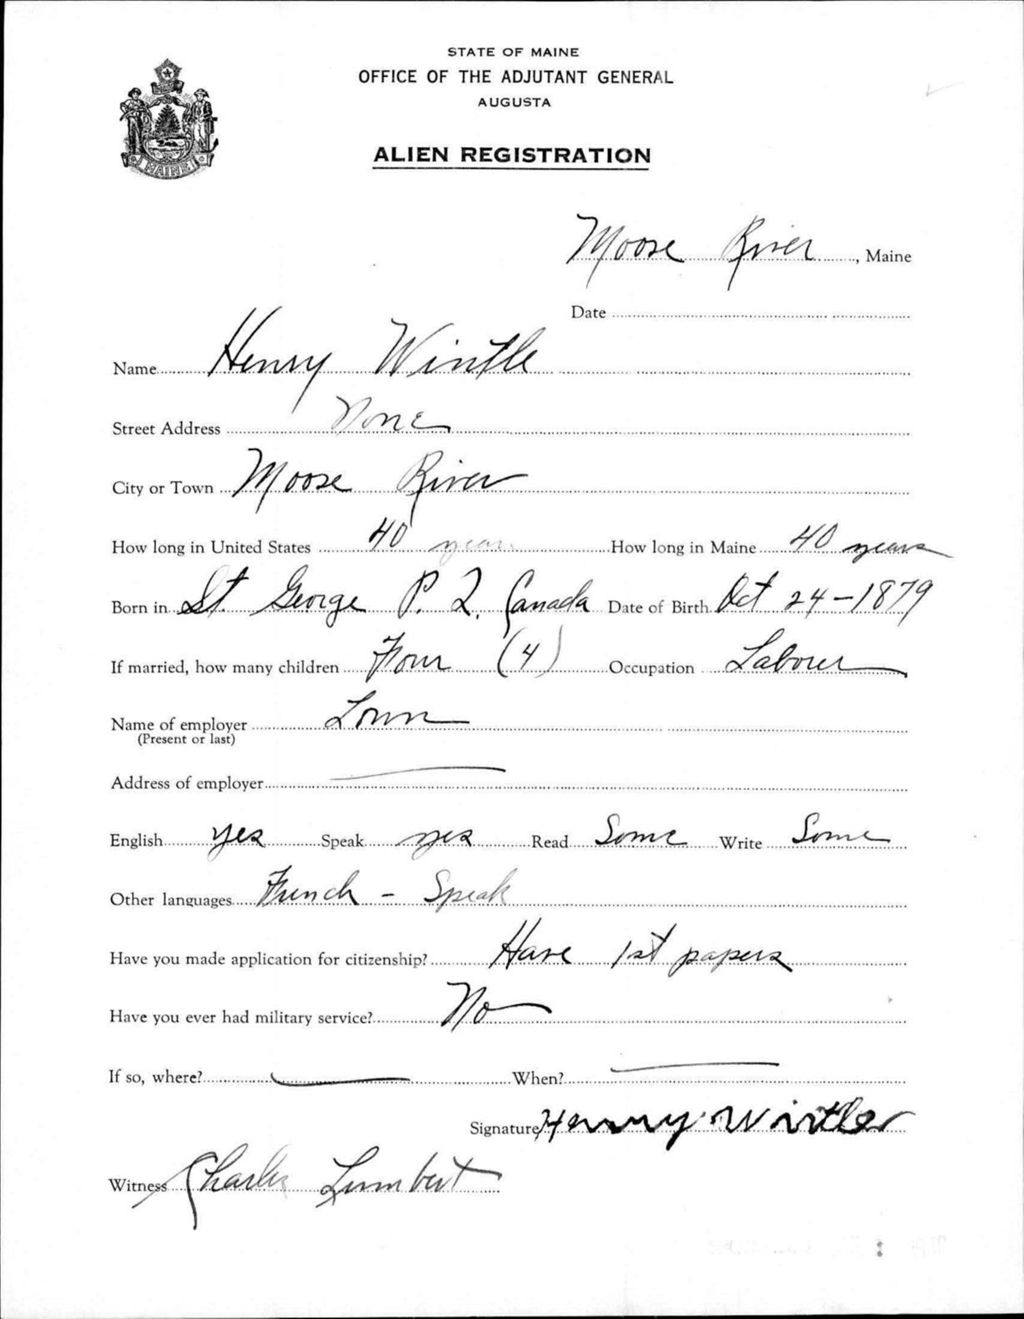 STATE OF MAINE
OFFICE OF THE ADJUTANT GENERAL
AUGUSTA
MAINE
ALIEN REGISTRATION
Moose River, Maine
Date
Name Henry Wintle
Street Address None
City or Town Moose River
How long in United States 40 years How long in Maine 40 years
Born in St. George P. Q. Canada Date of Birth Oct 24-1879
If married, how many children Four (4) Occupation Labourer
Name of employer Town
(Present or last)
Address of employer
English yes Speak yes Read Some Write Some
Other languages French - Speak
Have you made application for citizenship? Have 1st papers
Have you ever had military service? No
If so, where? When?
Signature Henry Wintle
Witness Charles Lumbert